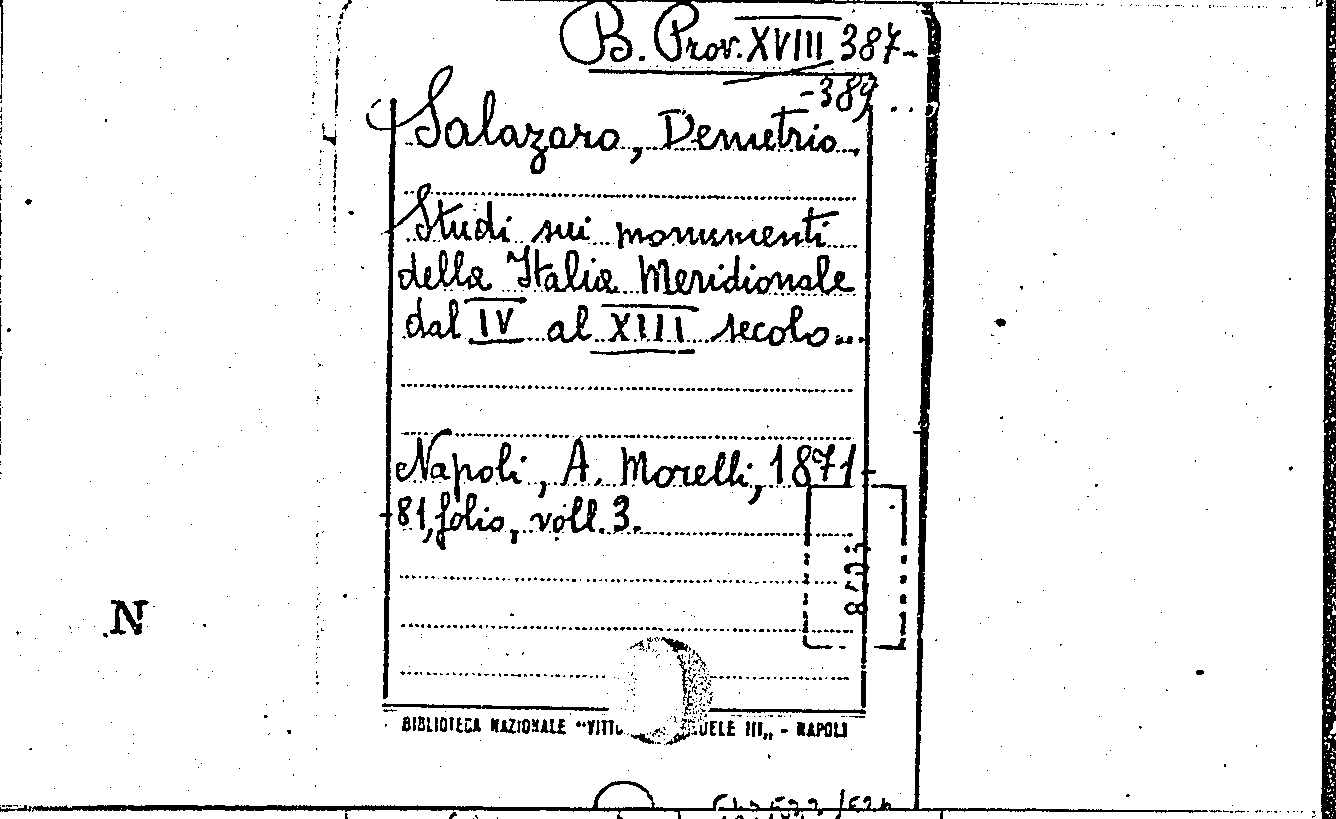 B. Prov. XVIII 387-
-389
Salazaro, Demetrio.
Studi sui monumenti
della Italia Meridionale
dal IV al XIII secolo...
Napoli, A. Morelli, 1871-
-81, folio, voll. 3.
N
BIBLIOTECA NAZIONALE "VITT UELE III„ - NAPOLI